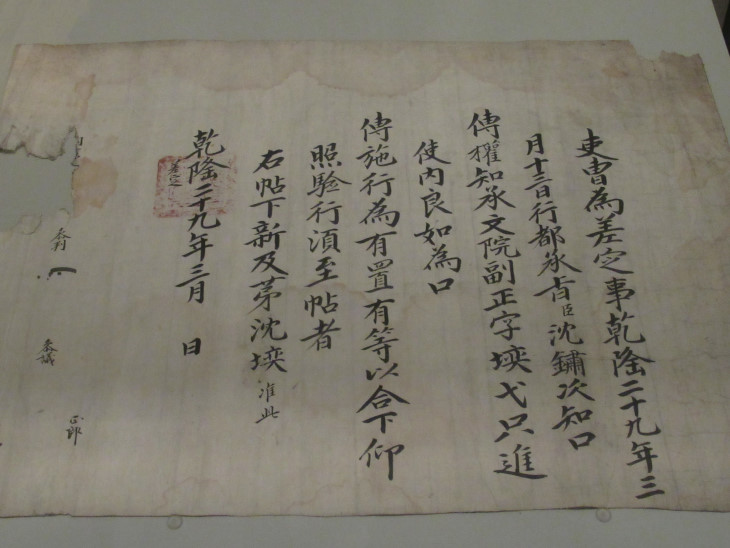 吏曹為差定事乾隆二十九年三
月十三日行都承旨臣沈鏽次知口
傳權知承文院副正字㙉弋只進
使內良如為口
傳施行為有置有等以合下仰
照驗行湏至帖者
右帖下新及苐沈㙉 准此
乾隆二十九年三月 日
差定
參議 正郎